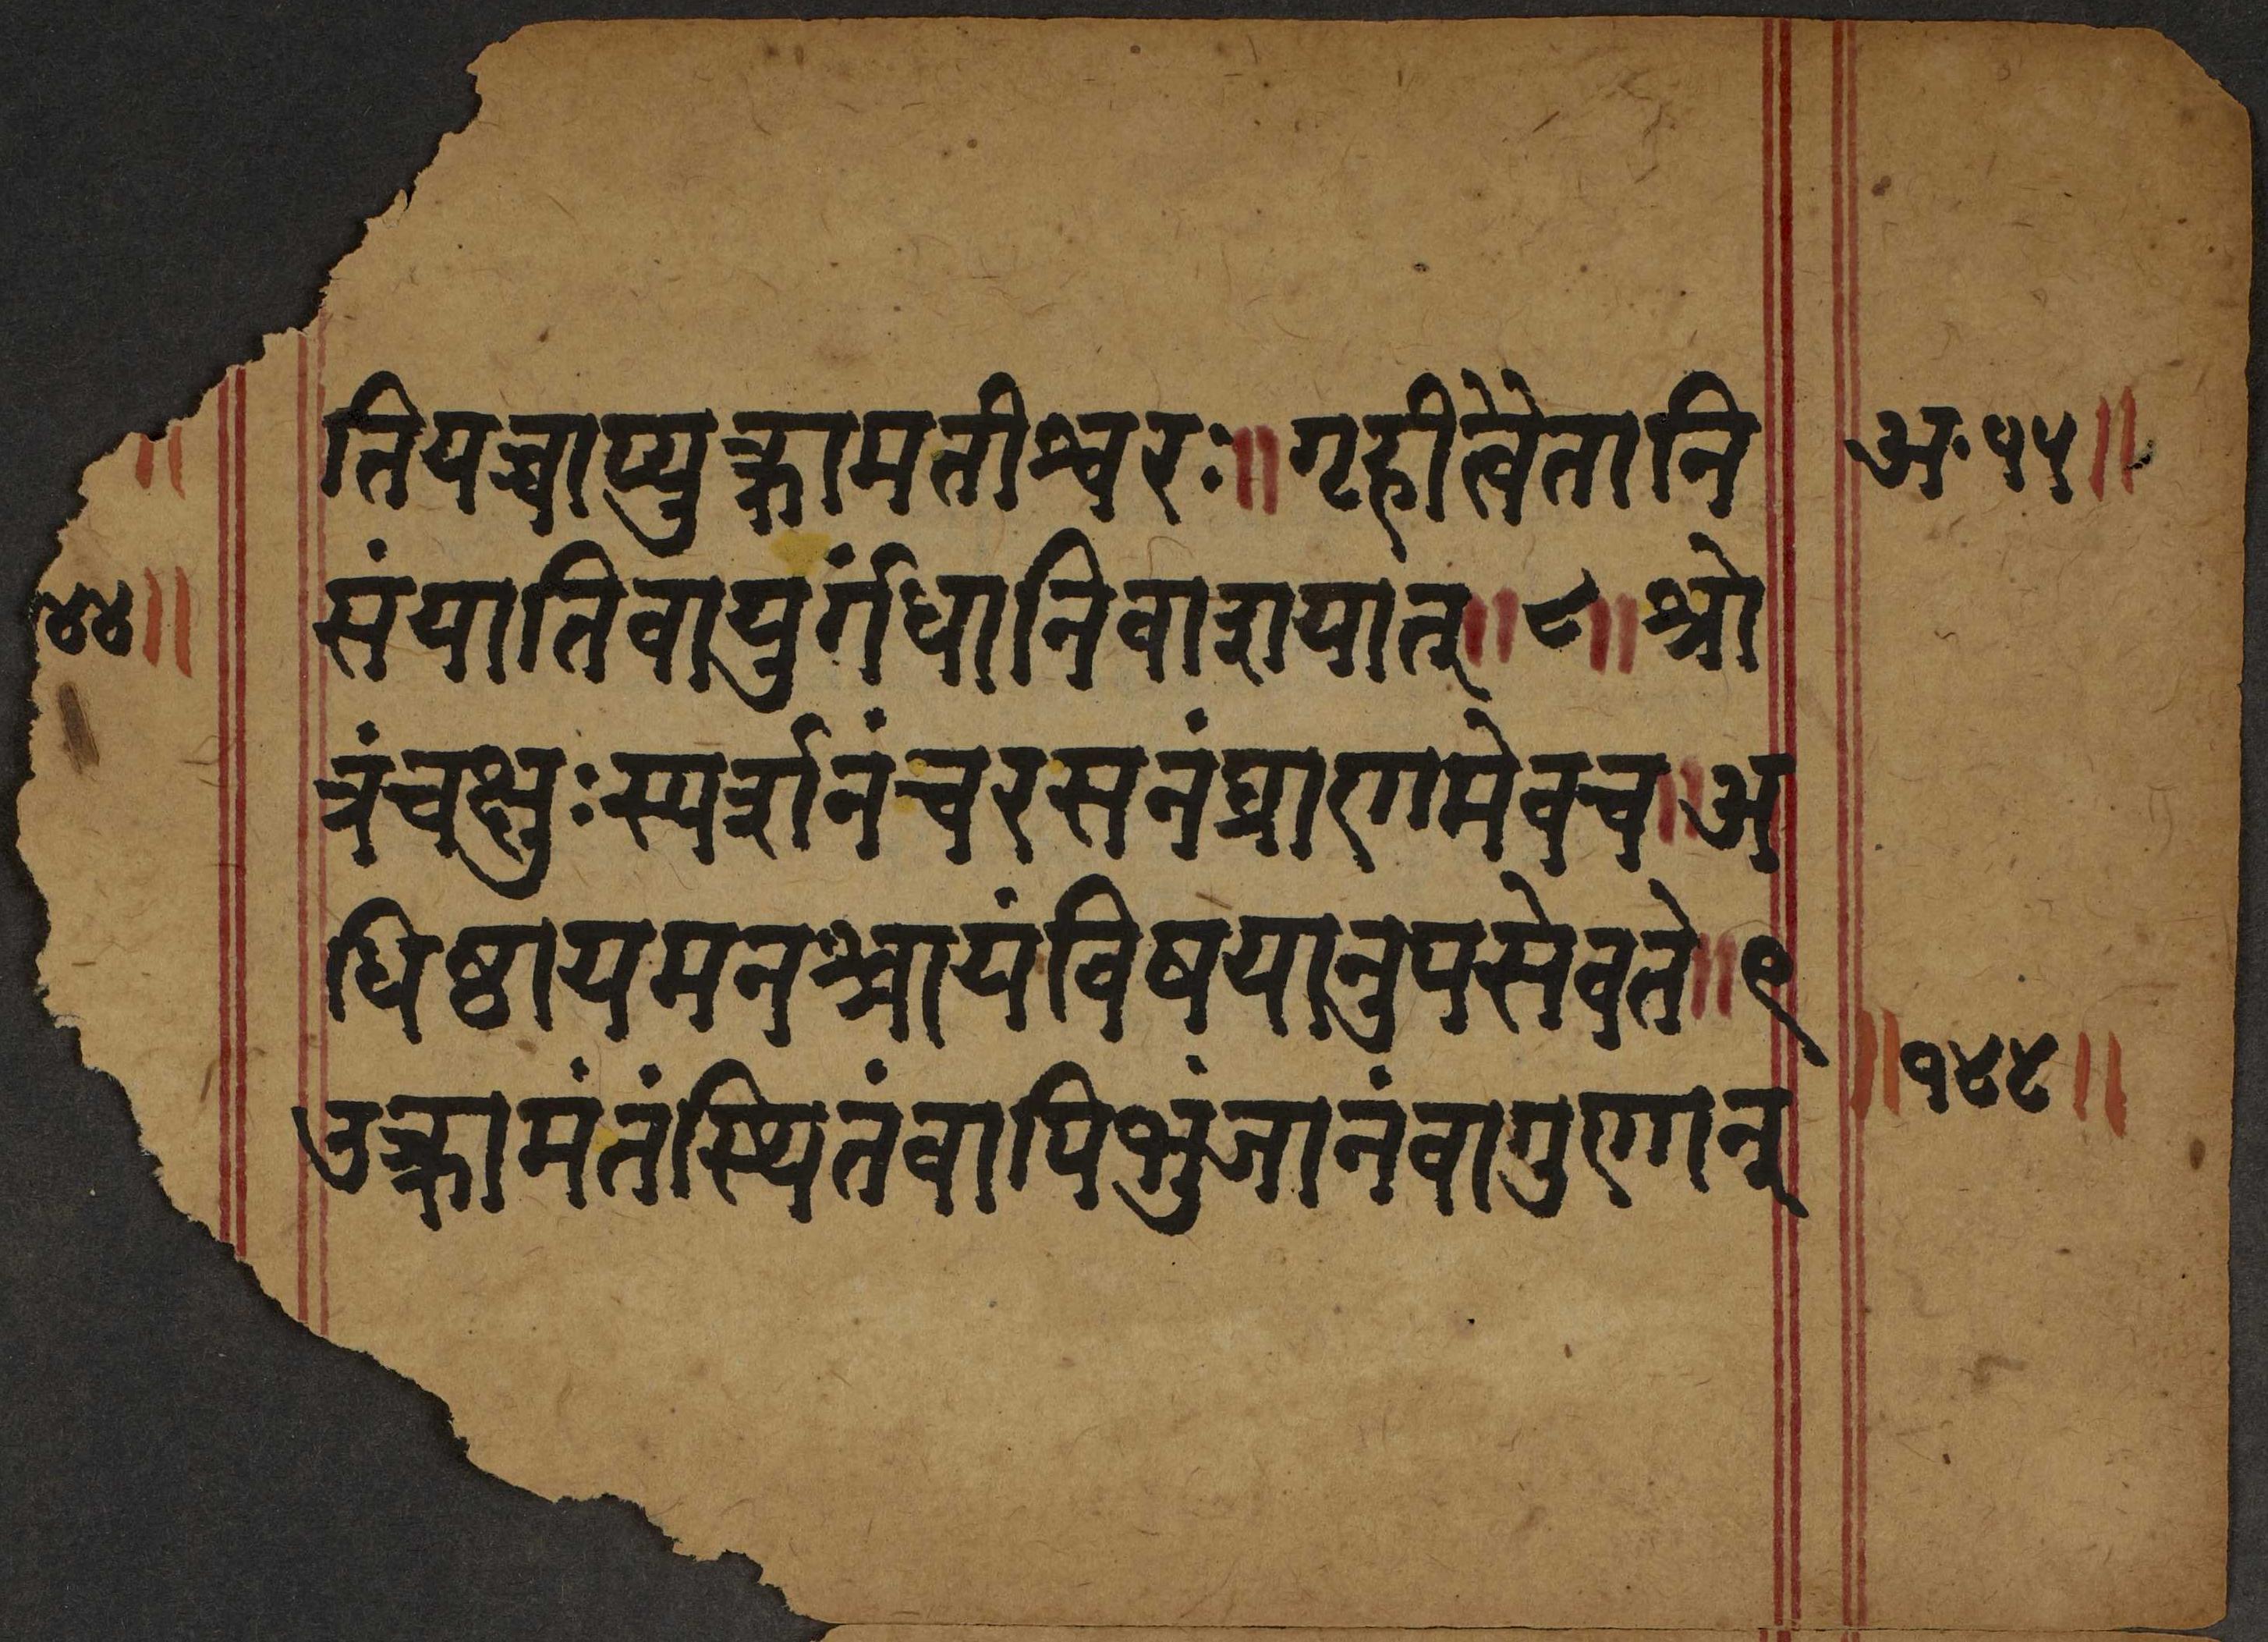 तियच्चाप्युत्क्रामतीश्वरः॥गृहीत्वैतानि
संयातिवायुर्गंधानिवाशयात्॥८॥श्रो
त्रंचक्षुःस्पर्शनंचरसनंघ्राणमेवच॥अ
धिष्ठायमनश्चायंविषयानुपसेवते॥९
उत्क्रामंतंस्थितंवापिभुंजानंवागुणान्
अ॰१५॥
॥१४४॥
॥
४४॥